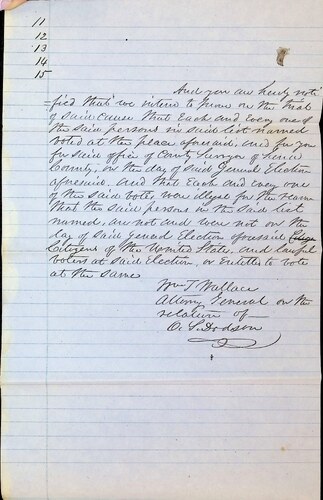 11
12
13
14
15
And you are hereby noti
=fied that we intend to prove on the trial
of said cause that Each and every one of
the said persons in said list named
voted at the place aforesaid and for you
for said office of County Surveyor of
County, on the day of said General Election
aforesaid. and that Each and every one
of the said votes, was illegal for the reason
that the said persons in the said list
named, are not and were not on the
day of said General Election aforesaid
Citizens of the United States, and lawful
voters at said Election, or Entitled to vote
at the same
Wm T. Wallace
Attorney General on the
relation of
O. S. Dodson